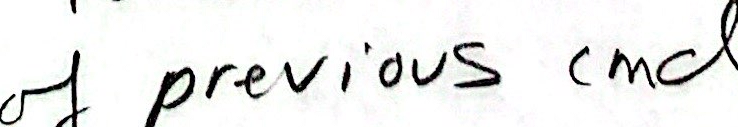 of previous cmd